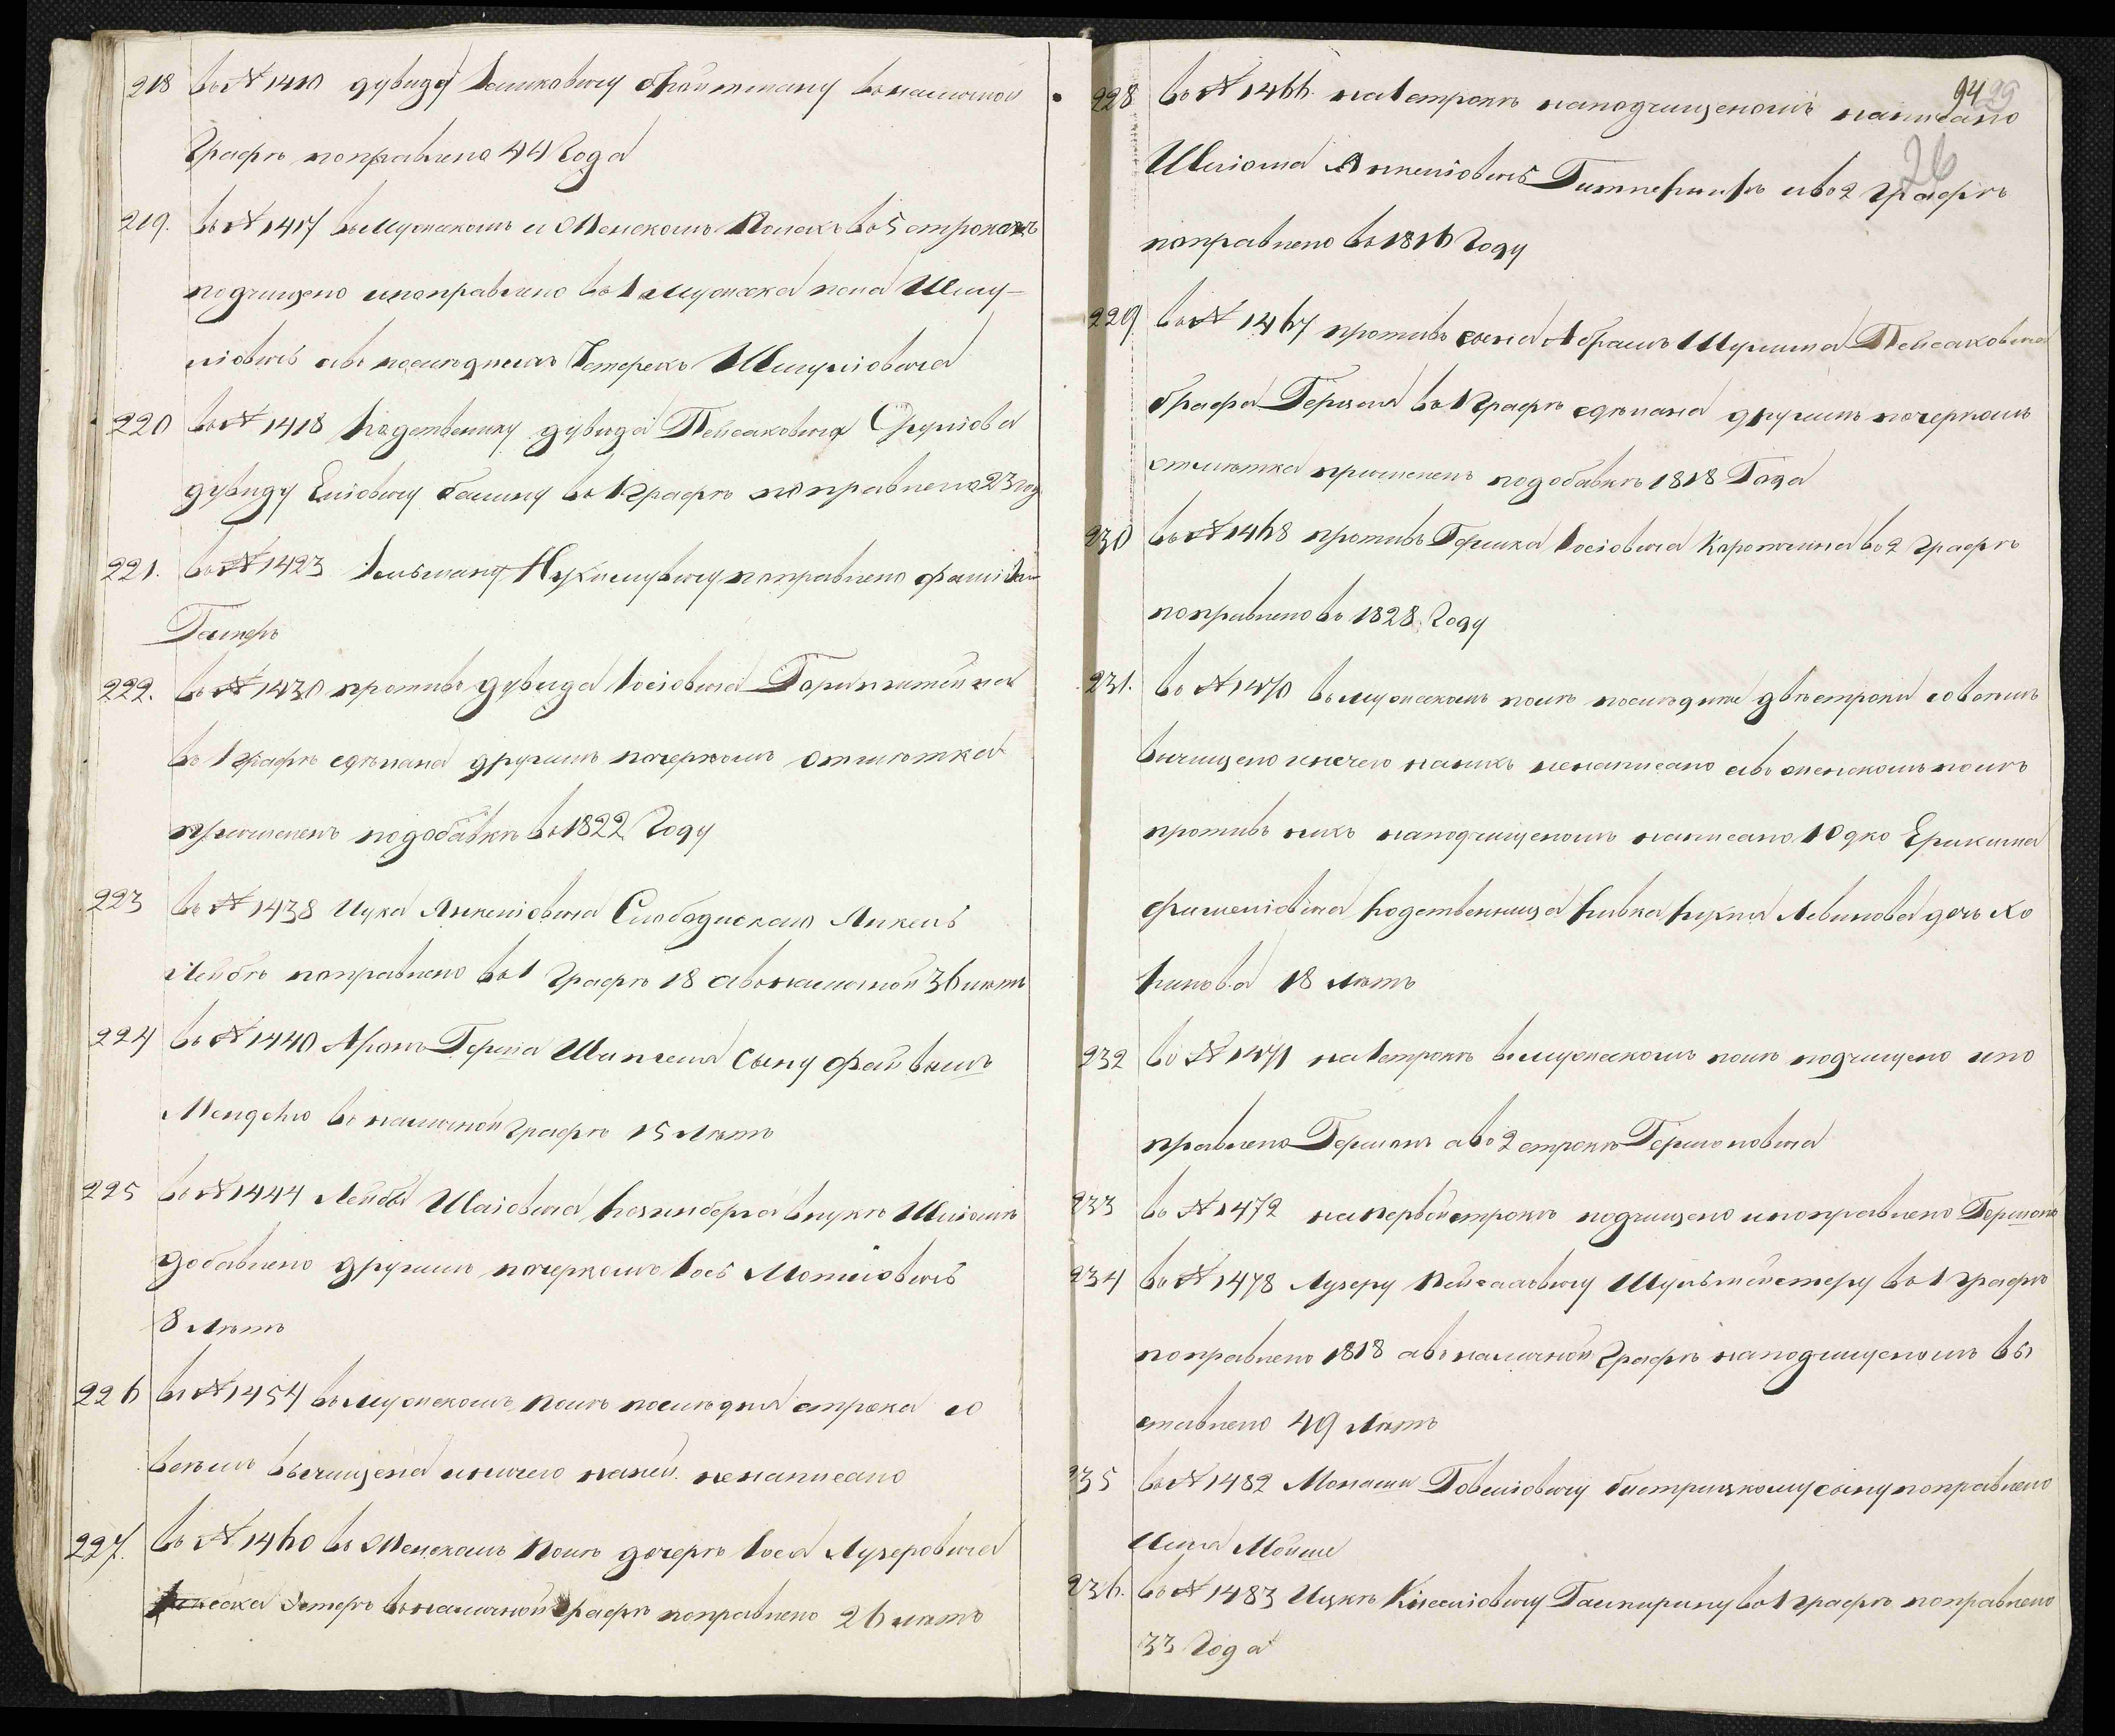 218 въ № 1410 Дувиду Іцыковичу Фрайтману въ наличной
графѣ поправлено 44 года
219. въ № 1417 въ мужскомъ и женскомъ полахъ въ 5 строкахъ
подчищено и поправлено въ 1 мужска пола Шму-
ліовичъ а въ послѣднихъ 4 стрехъ Шмуліовича
220 въ № 1418 родственику Дувида Пейсаховича
Дувиду Еліовичу въ 1 графѣ поправлено 23 год
221. въ № 1423 поправлено
222. въ № 1430 противъ Дувида Іосіовича
въ 1 графѣ сдѣлана другимъ почеркомъ отмѣтка
причисленъ по добавкѣ въ 1822 году
223 въ № 1438 Ицка Янкеліовича Слободискаго Янкель
Лейбѣ поправлено въ 1 графѣ 18 а въ наличной 36 лѣтъ
224 въ № 1440 Аронъ Герша сыну Файвишъ
Менделю въ наличной графѣ 15 лѣтъ
225 въ № 1444 Лейбы Шаіовича Розинберга внукѣ Шліомѣ
добавлено другимъ почеркомъ Іось Мотліовичъ
8 лѣтъ
226 въ № 1454 въ мужскомъ полѣ послѣдняя строка со
всѣмъ вычищена и ничего на ней не написано
227. въ № 1460 въ женскомъ полѣ дочерѣ Іося Лузеровича
Эстерѣ въ наличной графѣ поправлено 26 лѣтъ
94 29
26
228 въ № 1466 на 1 строкѣ на подчищеномъ написано
Шліома Янкеліовичъ и во 2 графѣ
поправлено въ 1816 году
229 въ № 1467 противъ сына Абрамъ Шулима Пейсаховича
брата Гершка въ 1 графѣ сдѣлана другимъ почеркомъ
отмѣтка причисленъ по добавкѣ 1818 года
230 въ № 1468 противъ Гершка Іосіовича во 2 графѣ
поправлено въ 1828 году
231. въ № 1470 въ мужскомъ полѣ послѣднія двѣ строки совсѣмъ
вичищено и ничего на нихъ не написано а въ женскомъ полѣ
противъ нихъ на подчищеномъ написано
Фишеліовича родственница Ривка Рухля дочь Хо
18 лѣтъ
232 въ № 1471 на 1 строкѣ въ мужскомъ полѣ подчищено и по
правлено Гершонъ а во 2 строкѣ Гершоновича
233 въ № 1472 на первой строкѣ подчищено и поправлено Гершонъ
234 въ № 1478 Лузеру Пейсаховичу Шульмейстеру въ 1 графѣ
поправлено 1818 а въ наличной графѣ на подчищеномъ вы
ставлено 49 лѣтъ
235 въ № 1482 Бистрицкому сыну поправлено
имя Мойше
236. въ № 1483 Ицкѣ Кисіліовичу Гальпирину въ 1 графѣ поправлено
33 года